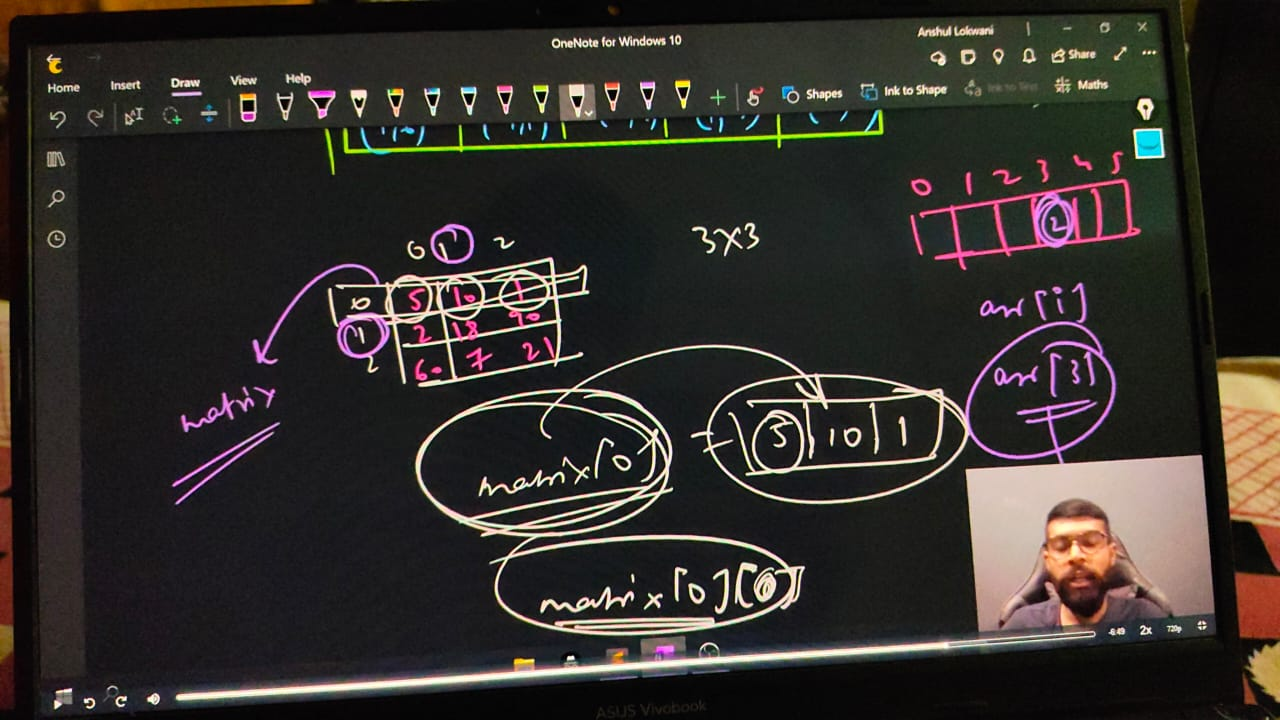 OneNote for Windows 10
Anshul Lokwani
Home Insert Draw View Help
Share
Shapes Ink to Shape Ink to Text Maths
0 1 2 3 4 5
2
0 1 2
3x3
0 5 10 1
1 2 18 90
2 60 7 21
arr[i]
arr[3]
matrix
matrix[0] = 5 10 1
matrix[0][0]
-6:49 2x 720p
ASUS Vivobook